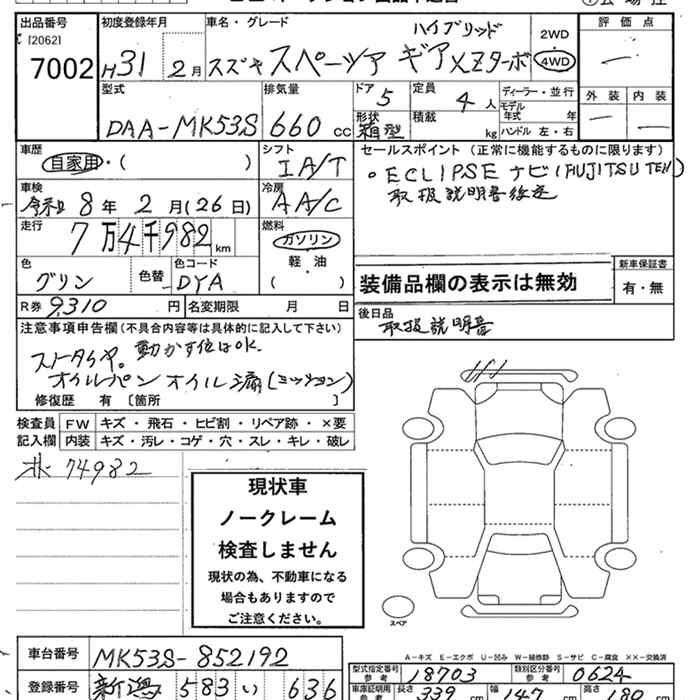 出品番号
[2062]
7002
初度登録年月
H31 2月
車名・グレード
ハイブリッド
スズキ スペーシア ギア XZターボ
2WD
4WD
評価点
外装 内装
型式
DAA-MK53S
排気量
660 cc
ドア
5
形状
箱型
定員
4人
積載
kg
ディーラー・並行
モデル年式 年
ハンドル 左・右
車歴
自家用・( )
シフト
IA/T
車検
令和 8年 2月(26日)
冷房
AA/C
走行
7万4千982km
燃料
ガソリン
軽・油
( )
色
グリン
色替
色コード
DYA
R券 9,310 円
名変期限 月 日
セールスポイント(正常に機能するものに限ります)
・ECLIPSE ナビ(FUJITSU TEN)
取扱説明書後送
装備品欄の表示は無効
新車保証書
有・無
後日品
取扱説明書
注意事項申告欄(不具合内容等は具体的に記入して下さい)
動かす位はOK.
オイルパン オイル漏(ミッション)
修復歴 有 [箇所 ]
検査員記入欄
FW キズ・飛石・ヒビ割・リペア跡・×要
内装 キズ・汚レ・コゲ・穴・スレ・キレ・破レ
74982
現状車
ノークレーム
検査しません
現状の為、不動車になる
場合もありますので
ご注意ください。
スペア
A-キズ E-エクボ U-凹み W-補修跡 S-サビ C-腐食 ××-交換済
車台番号 MK53S-852192
型式指定番号 参考 18703
類別区分番号 参考 0624
登録番号 新潟 583 い 636
車庫証明用 参考 長さ 339 cm 幅 147 cm 高さ 180 cm